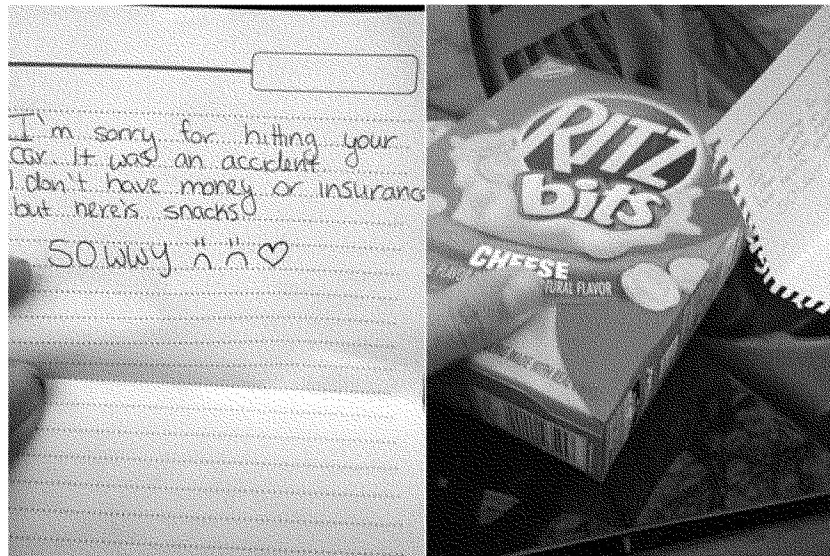 I'm sorry for hitting your
car. It was an accident
I don't have money or insurance
but here's snacks!
SOWWY
RITZ
bits
CHEESE
TURAL FLAVOR